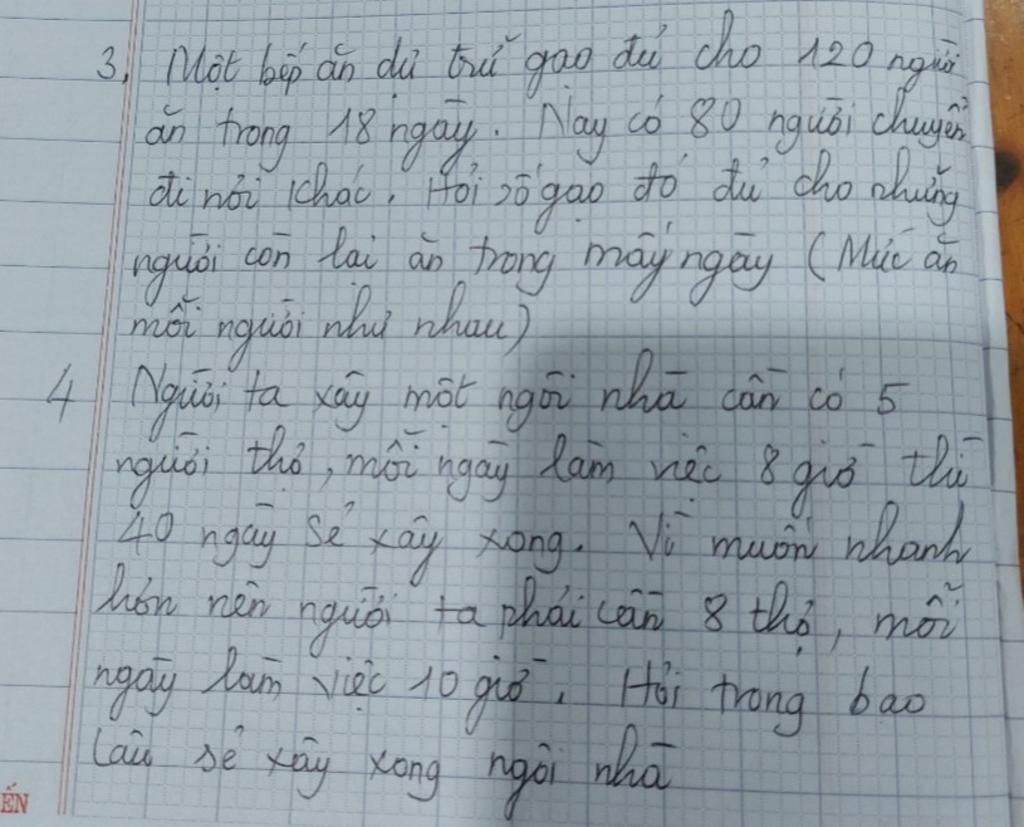 3, Một bếp ăn dự trữ gạo đủ cho 120 người
ăn trong 18 ngày. Nay có 80 người chuyển
đi nơi khác. Hỏi số gạo đó đủ cho những
người còn lại ăn trong mấy ngày (Mức ăn
mỗi người như nhau)
4 Người ta xây một ngôi nhà cần có 5
người thợ, mỗi ngày làm việc 8 giờ thì
40 ngày sẽ xây xong. Vì muốn nhanh
hơn nên người ta phải cần 8 thợ, mỗi
ngày làm việc 10 giờ. Hỏi trong bao
lâu sẽ xây xong ngôi nhà
ẾN